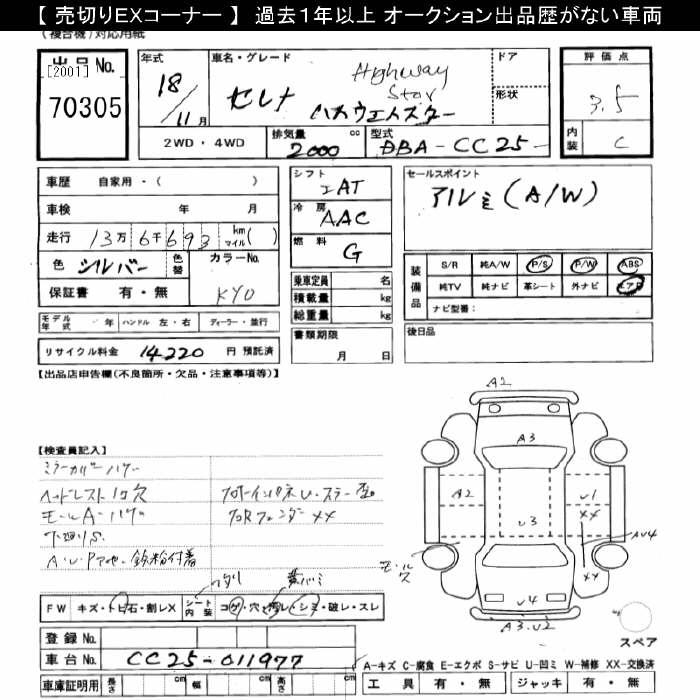 【 売切りEXコーナー 】 過去1年以上 オークション出品歴がない車両
(複合機)対応用紙
出品No.
[2001]
70305
年式
18/11月
車名・グレード
セレナ
Highway Star
ハイウェイスター
ドア
形状
2WD・4WD
排気量 2000 cc
型式 DBA-CC25-
評価点
3.5
内装 C
車歴 自家用・( )
車検 年 月
走行 13万6千693 km マイル( )
色 シルバー 色替 カラーNo.
保証書 有・無 KY0
モデル年式 年 ハンドル 左・右 ディーラー・並行
リサイクル料金 14220 円 預託済
シフト
AT
冷房
AAC
燃料
G
乗車定員 名
積載量 kg
総重量 kg
書類期限
月 日
セールスポイント
アルミ(A/W)
装備品
S/R 純A/W P/S P/W ABS
純TV 純ナビ 革シート 外ナビ エアB
ナビ型番:
後日品
【出品店申告欄(不良箇所・欠品・注意事項等)】
【検査員記入】
ヘッドレスト1ケ欠
下廻りS
A・U・Pアセ・鉄粉付着
フロアXX
A2
A3
A2
U1
XX
U3
AU4
XX
U4
A3.U2
スペア
FW キズ・トビ石・割レX
シート内装 コゲ・穴・汚レ・シミ・破レ・スレ
登録No.
車台No. CC25-011977
車庫証明用 長さ cm 幅 cm 高さ cm
A-キズ C-腐食 E-エクボ S-サビ U-凹ミ W-補修 XX-交換済
工具 有・無 ジャッキ 有・無